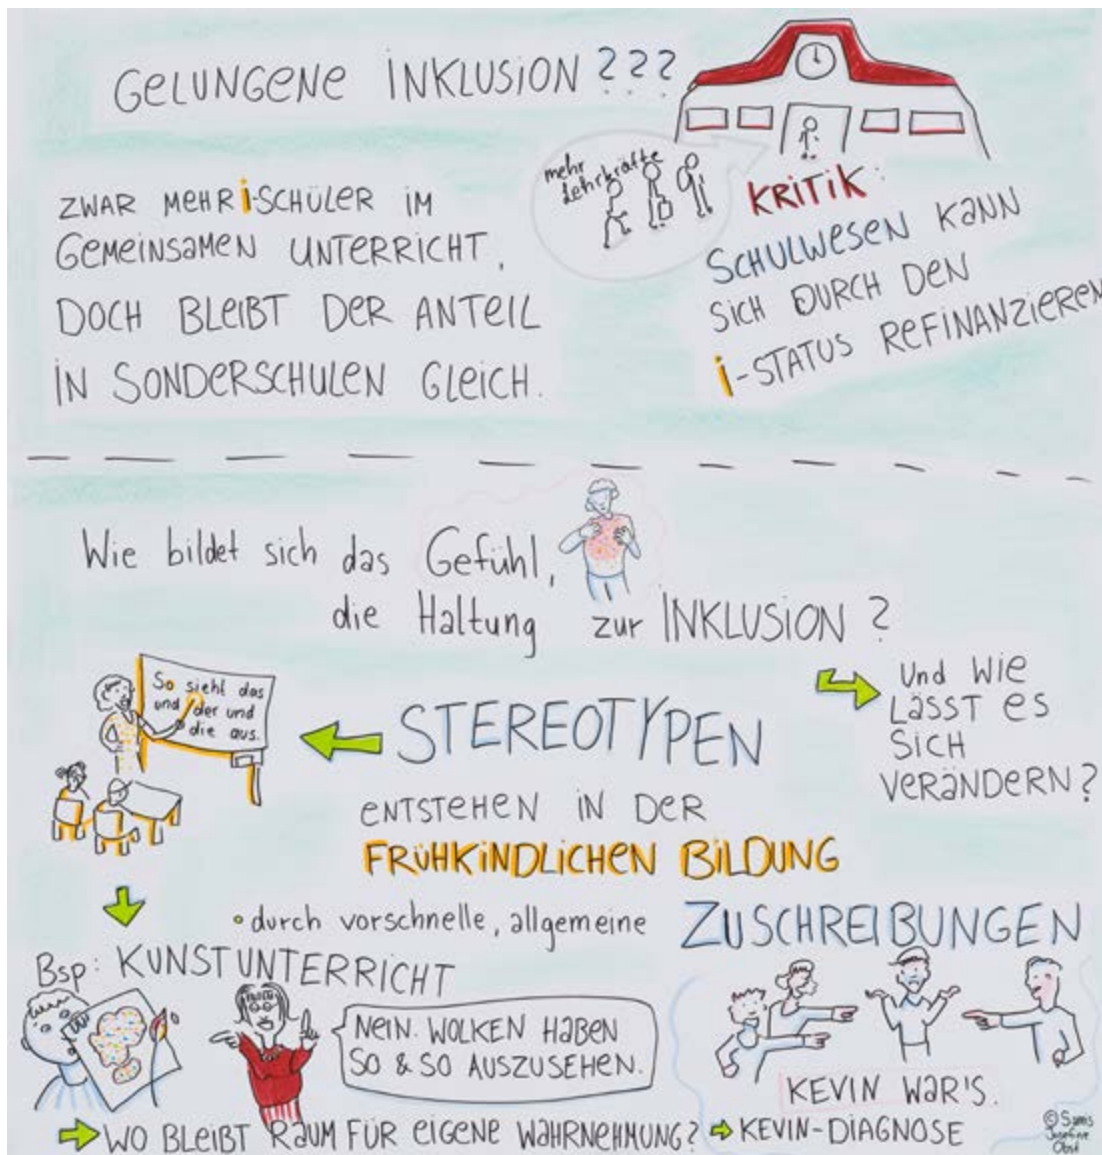 GELUNGENE INKLUSION ???
ZWAR MEHR i-SCHÜLER IM
GEMEINSAMEN UNTERRICHT,
DOCH BLEIBT DER ANTEIL
IN SONDERSCHULEN GLEICH.
mehr
Lehrkräfte
KRITIK:
SCHULWESEN KANN
SICH DURCH DEN
i-STATUS REFINANZIEREN
Wie bildet sich das Gefühl,
die Haltung zur INKLUSION?
Und WIE
LÄSST ES
SICH
VERÄNDERN?
So sieht das
und der und
die aus.
STEREOTYPEN
ENTSTEHEN IN DER
FRÜHKINDLICHEN BILDUNG
durch vorschnelle, allgemeine ZUSCHREIBUNGEN
Bsp: KUNSTUNTERRICHT
NEIN. WOLKEN HABEN
SO & SO AUSZUSEHEN.
KEVIN WAR'S.
WO BLEIBT RAUM FÜR EIGENE WAHRNEHMUNG? KEVIN-DIAGNOSE
©
Obst